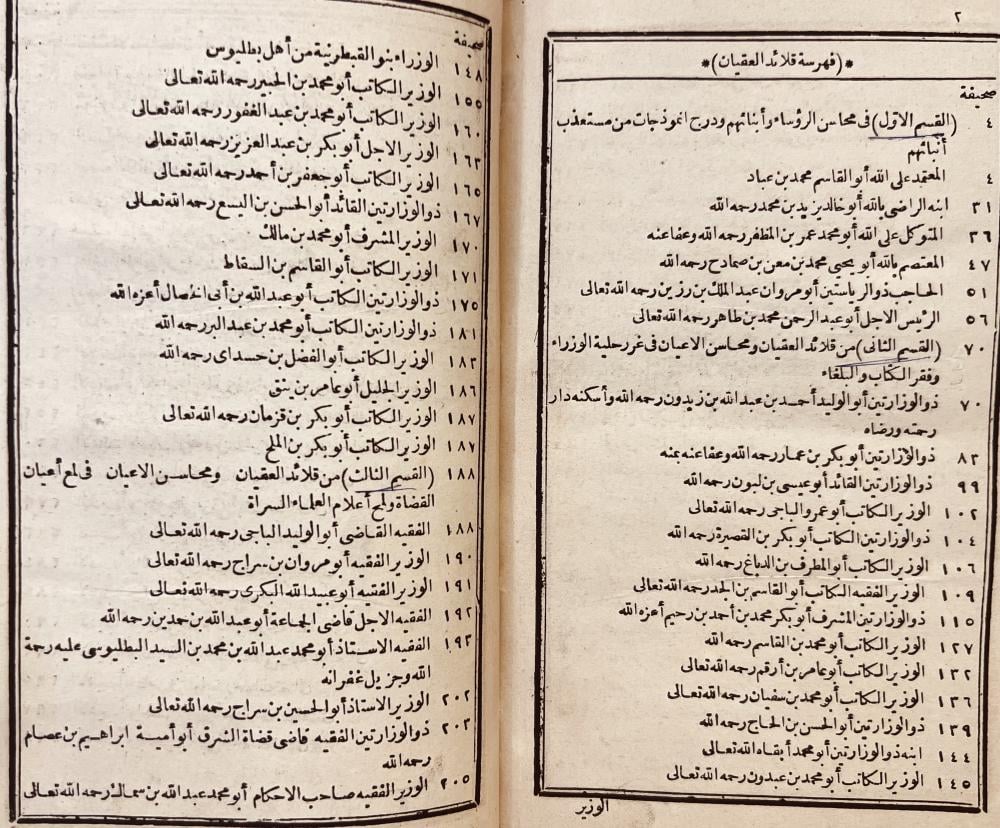 ٢
*(فهرسة قلائد العقيان)*
صحيفة
٤ (القسم الاول) فى محاسن الرؤساء وأبنائهم ودرج انموذجات من مستعذب
أنبائهم
٤ المعتمد على الله أبو القاسم محمد بن عباد
٣١ ابنه الراضى بالله أبو خالد يزيد بن محمد رحمه الله
٣٦ المتوكل على الله أبو محمد عمر بن المظفر رحمه الله وعفا عنه
٤٧ المعتصم بالله أبو يحيى محمد بن معن بن صمادح رحمه الله
٥١ الحاجب ذو الرياستين أبو مروان عبد الملك بن رزين رحمه الله تعالى
٥٦ الرئيس الاجل أبو عبد الرحمن محمد بن طاهر رحمه الله تعالى
٧٠ (القسم الثانى) من قلائد العقيان ومحاسن الاعيان فى غرر حلية الوزراء
وفقر الكتاب والبلغاء
٧٠ ذو الوزارتين أبو الوليد أحمد بن عبد الله بن زيدون رحمه الله وأسكنه دار
رحمته ورضاه
٨٣ ذو الوزارتين أبو بكر بن عمار رحمه الله وعفا عنه بمنه
٩٩ ذو الوزارتين القائد أبو عيسى بن لبون رحمه الله
١٠٢ الوزير الكاتب أبو عمرو الباجى رحمه الله تعالى
١٠٤ ذو الوزارتين الكاتب أبو بكر بن القصيرة رحمه الله
١٠٦ الوزير الكاتب أبو المطرف بن الدباغ رحمه الله
١٠٩ الوزير الفقيه الكاتب أبو القاسم بن الجد رحمه الله تعالى
١١٥ ذو الوزارتين المشرف أبو بكر محمد بن أحمد بن رحيم أعزه الله
١٢٧ الوزير الكاتب أبو محمد بن القاسم رحمه الله
١٣٢ الوزير الكاتب أبو عامر بن أرقم رحمه الله تعالى
١٣٦ الوزير الكاتب أبو محمد بن سفيان رحمه الله تعالى
١٣٩ ذو الوزارتين أبو الحسن بن الحاج رحمه الله
١٤٤ ابنه ذو الوزارتين أبو محمد أبقاه الله تعالى
١٤٥ الوزير الكاتب أبو محمد بن عبدون رحمه الله تعالى
الوزير
صحيفة
١٤٨ الوزراء بنو القبطرنية من أهل بطليوس
١٥٥ الوزير الكاتب أبو محمد بن الجبير رحمه الله تعالى
١٦٠ الوزير الكاتب أبو محمد بن عبد الغفور رحمه الله تعالى
١٦٣ الوزير الاجل أبو بكر بن عبد العزيز رحمه الله تعالى
١٦٥ الوزير الكاتب أبو جعفر بن أحمد رحمه الله تعالى
١٦٧ ذو الوزارتين القائد أبو الحسن بن اليسع رحمه الله تعالى
١٧٠ الوزير المشرف أبو محمد بن مالك
١٧١ الوزير الكاتب أبو القاسم بن السقاط
١٧٥ ذو الوزارتين الكاتب أبو عبد الله بن أبى الخصال أعزه الله
١٨١ ذو الوزارتين الكاتب أبو محمد بن عبد البر رحمه الله
١٨٣ الوزير الكاتب أبو الفضل بن حسداى رحمه الله
١٨٦ الوزير الجليل أبو عامر بن ينق
١٨٧ الوزير الكاتب أبو بكر بن قزمان رحمه الله تعالى
١٨٧ الوزير الكاتب أبو بكر بن الملح
١٨٨ (القسم الثالث) من قلائد العقيان ومحاسن الاعيان فى لمع أعيان
القضاة ولمح أعلام العلماء السراة
١٨٨ الفقيه القاضى أبو الوليد الباجى رحمه الله تعالى
١٩٠ الوزير الفقيه أبو مروان بن سراج رحمه الله تعالى
١٩١ الوزير الفقيه أبو عبيد الله البكرى رحمه الله تعالى
١٩٢ الفقيه الاجل قاضى الجماعة أبو عبد الله بن حمدين رحمه الله
١٩٣ الفقيه الاستاذ أبو محمد عبد الله بن محمد بن السيد البطليوسى عليه رحمة
الله وجزيل غفرانه
٢٠٢ الوزير الاستاذ أبو الحسين بن سراج رحمه الله تعالى
٢٠٣ ذو الوزارتين الفقيه قاضى قضاة الشرق أبو أمية ابراهيم بن عصام
رحمه الله
٢٠٥ الوزير الفقيه صاحب الاحكام أبو محمد عبد الله بن سماك رحمه الله تعالى